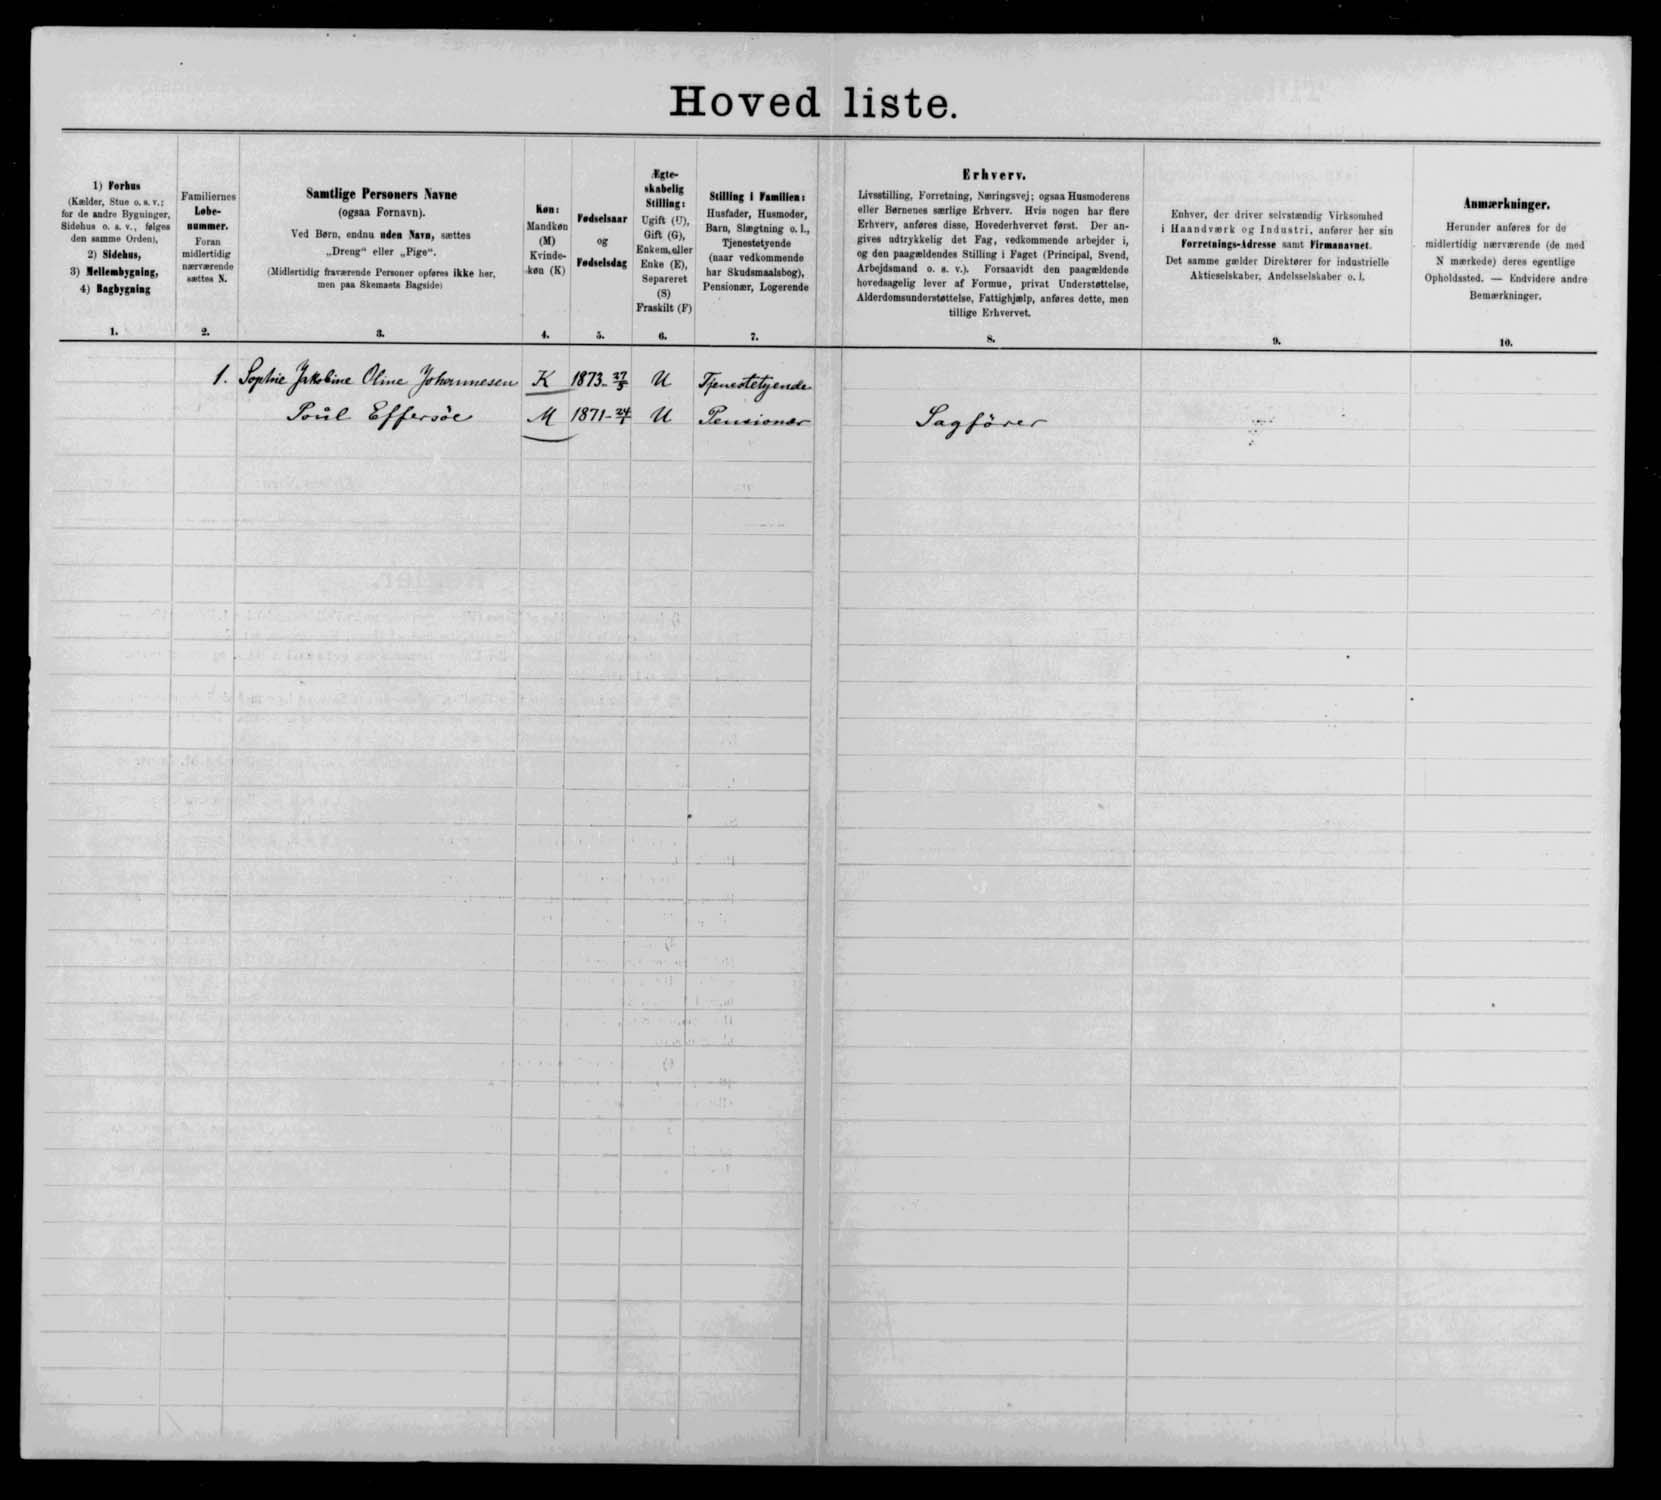 Hovedliste.
1) Forhus
(Kælder, Stue o. s. v.;
for de andre Bygninger,
Sidehus o. s. v., følges
den samme Orden),
2) Sidehus,
3) Mellembygning,
4) Bagbygning
1.
Familiernes
Løbe-
nummer.
Foran
midlertidig
nærværende
sættes N.
2.
Samtlige Personers Navne
(ogsaa Fornavn).
Ved Børn, endnu uden Navn, sættes
„Dreng“ eller „Pige“.
(Midlertidig fraværende Personer opføres ikke her,
men paa Skemaets Bagside)
3.
Køn:
Mandkøn
(M)
Kvinde-
køn (K)
4.
Fødselsaar
og
Fødselsdag
5.
Ægte-
skabelig
Stilling:
Ugift (U),
Gift (G),
Enkem. eller
Enke (E),
Separeret
(S)
Fraskilt (F)
6.
Stilling i Familien:
Husfader, Husmoder,
Barn, Slægtning o. l.,
Tjenestetyende
(naar vedkommende
har Skudsmaalsbog),
Pensionær, Logerende
7.
Erhverv.
Livsstilling, Forretning, Næringsvej; ogsaa Husmoderens
eller Børnenes særlige Erhverv. Hvis nogen har flere
Erhverv, anføres disse, Hovederhvervet først. Der an-
gives udtrykkelig det Fag, vedkommende arbejder i,
og den paagældendes Stilling i Faget (Principal, Svend,
Arbejdsmand o. s. v.). Forsaavidt den paagældende
hovedsagelig lever af Formue, privat Understøttelse,
Alderdomsunderstøttelse, Fattighjælp, anføres dette, men
tillige Erhvervet.
8.
Enhver, der driver selvstændig Virksomhed
i Haandværk og Industri, anfører her sin
Forretnings-Adresse samt Firmanavnet.
Det samme gælder Direktører for industrielle
Aktieselskaber, Andelsselskaber o. l.
9.
Anmærkninger.
Herunder anføres for de
midlertidig nærværende (de med
N mærkede) deres egentlige
Opholdssted. — Endvidere andre
Bemærkninger.
10.
1. Sophie Jakobine Oline Johannesen K 1873-27/5 U Tjenestetyende
Poul Effersöe M 1871-24/1 U Pensionær Sagförer